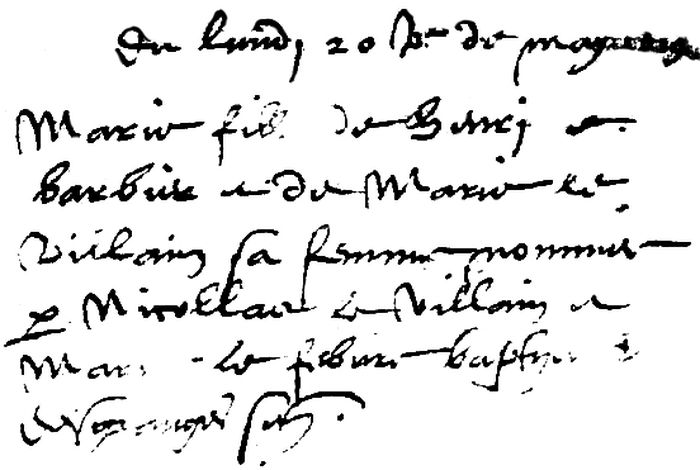 Du lundi 20 de may
Marie fill de Henri le
barbier et de Marie le
Villain sa femme nommee
p Nicollas le Villain et
Mari le febure baptize